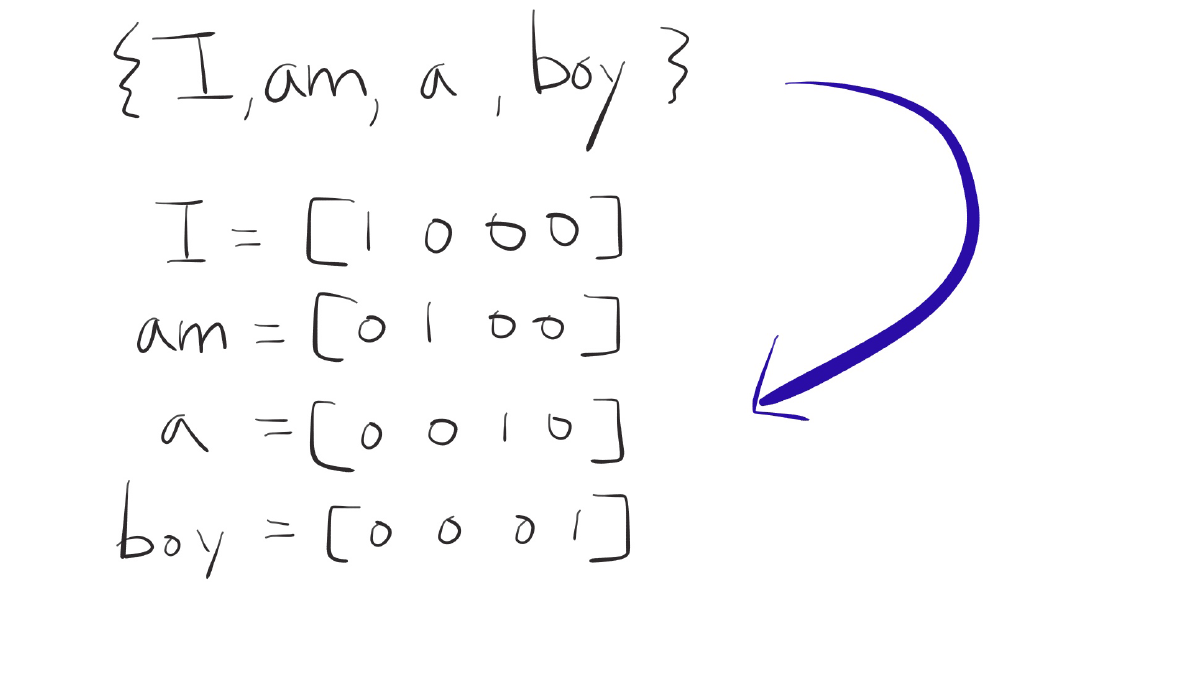 { I, am, a, boy }
I = [1 0 0 0]
am = [0 1 0 0]
a = [0 0 1 0]
boy = [0 0 0 1]